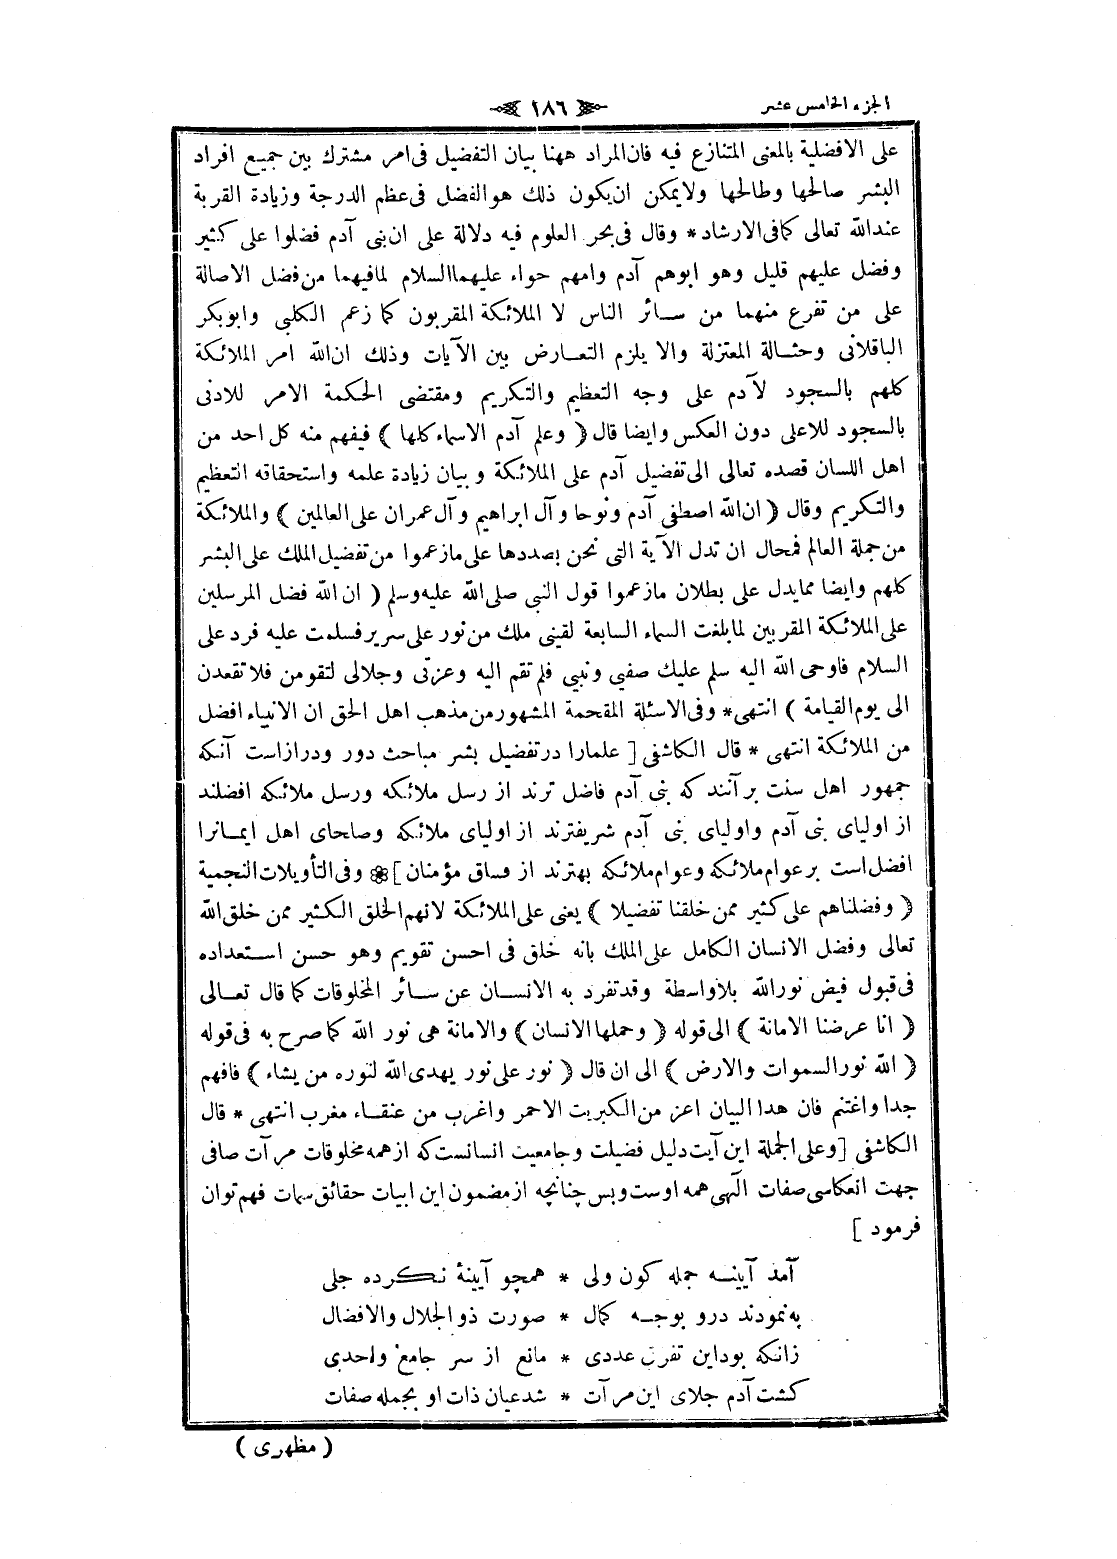 الجزء الخامس عشر
١٨٦
على الافضلية بالمعنى المتنازع فيه فان المراد ههنا بيان التفضيل فى امر مشترك بين جميع افراد
البشر صالحها وطالحها ولا يمكن ان يكون ذلك هو الفضل فى عظم الدرجة وزيادة القربة
عند الله تعالى كما فى الارشاد * وقال فى بحر العلوم فيه دلالة على ان بنى آدم فضلوا على كثير
وفضل عليهم قليل وهو ابوهم آدم وامهم حواء عليهما السلام لما فيهما من فضل الاصالة
على من تفرع منهما من سائر الناس لا الملائكة المقربون كما زعم الكلبى وابوبكر
الباقلانى وحثالة المعتزلة والا يلزم التعارض بين الآيات وذلك ان الله امر الملائكة
كلهم بالسجود لآدم على وجه التعظيم والتكريم ومقتضى الحكمة الامر للادنى
بالسجود للاعلى دون العكس وايضا قال ( وعلم آدم الاسماء كلها ) فيفهم منه كل احد من
اهل اللسان قصده تعالى الى تفضيل آدم على الملائكة و بيان زيادة علمه واستحقاقه التعظيم
والتكريم وقال ( ان الله اصطفى آدم ونوحا وآل ابراهيم وآل عمران على العالمين ) والملائكة
من جملة العالم فمحال ان تدل الآية التى نحن بصددها على ما زعموا من تفضيل الملك على البشر
كلهم وايضا مما يدل على بطلان ما زعموا قول النبى صلى الله عليه وسلم ( ان الله فضل المرسلين
على الملائكة المقربين لما بلغت السماء السابعة لقينى ملك من نور على سرير فسلمت عليه فرد على
السلام فاوحى الله اليه سلم عليك صفيى ونبيى فلم تقم اليه وعزتى وجلالى لتقومن فلا تقعدن
الى يوم القيامة ) انتهى * وفى الاسئلة المقحمة المشهور من مذهب اهل الحق ان الانبياء افضل
من الملائكة انتهى * قال الكاشفى [ علمارا در تفضيل بشر مباحث دور ودرازاست آنكه
جمهور اهل سنت برآنند كه بنى آدم فاضل ترند از رسل ملائكه ورسل ملائكه افضلند
از اولياى بنى آدم واولياى بنى آدم شريفترند از اولياى ملائكه وصلحاى اهل ايمانرا
افضل است بر عوام ملائكه وعوام ملائكه بهترند از فساق مؤمنان ] ❀ وفى التأويلات النجمية
( وفضلناهم على كثير ممن خلقنا تفضيلا ) يعنى على الملائكة لانهم الخلق الكثير ممن خلق الله
تعالى وفضل الانسان الكامل على الملك بانه خلق فى احسن تقويم وهو حسن استعداده
فى قبول فيض نور الله بلاواسطة وقد تفرد به الانسان عن سائر المخلوقات كما قال تعالى
( انا عرضنا الامانة ) الى قوله ( وحملها الانسان ) والامانة هى نور الله كما صرح به فى قوله
( الله نور السموات والارض ) الى ان قال ( نور على نور يهدى الله لنوره من يشاء ) فافهم
جدا واغتنم فان هذا البيان اعز من الكبريت الاحمر واغرب من عنقاء مغرب انتهى * قال
الكاشفى [ وعلى الجملة اين آيت دليل فضيلت وجامعيت انسانست كه از همه مخلوقات مرآت صافى
جهت انعكاسى صفات الٓهى همه اوست وبس چنانچه از مضمون اين ابيات حقائق سمات فهم توان
فرمود ]
آمد آيينه جمله كون ولى * همچو آيينۀ نكرده جلى
به نمودند درو بوجه كمال * صورت ذو الجلال والافضال
زانكه بود اين تفرق عددى * مانع از سر جامع واحدى
كشت آدم جلاى اين مرآت * شد عيان ذات او بجمله صفات
( مظهرى )